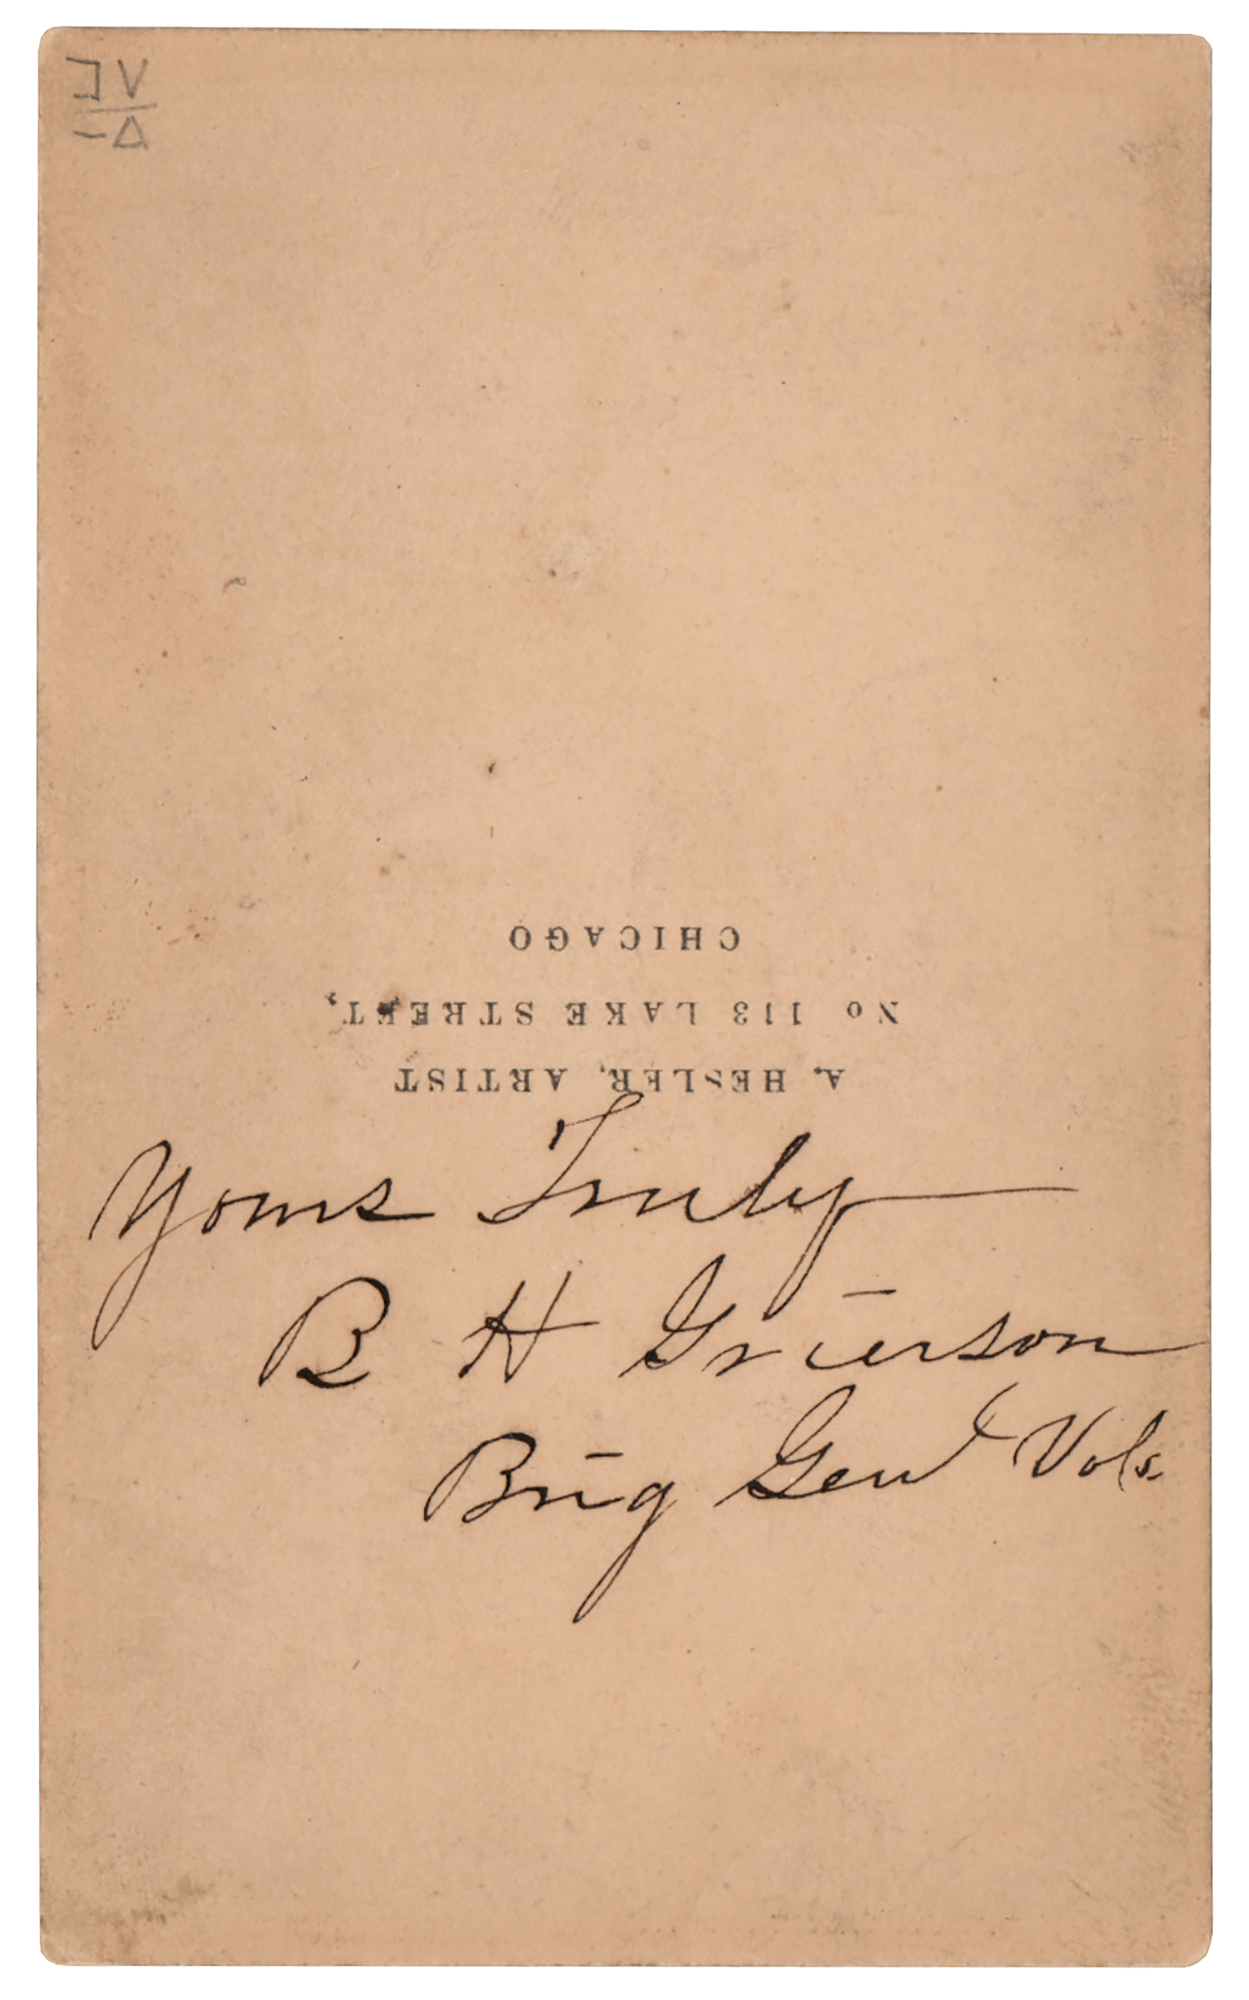 CHICAGO
No 113 LAKE STREET,
A. HESLER, ARTIST
Yours Truly
B H Grierson
Brig Genl Vols.